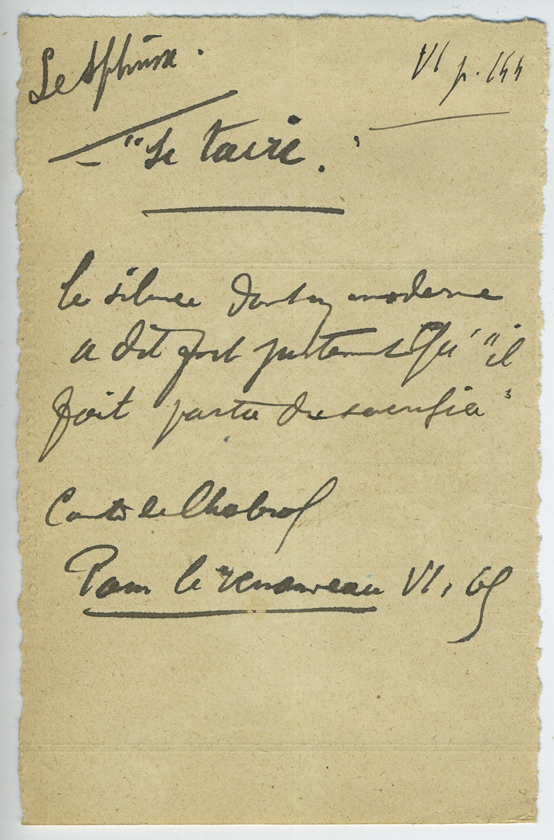 Le Sphinx. VI p. 144
— "Se taire."
Le silence dont un moderne
a dit fort justement qu' "il
fait partie du sacrifice"
Comte de Chabrol
Pour le renouveau VI, 69